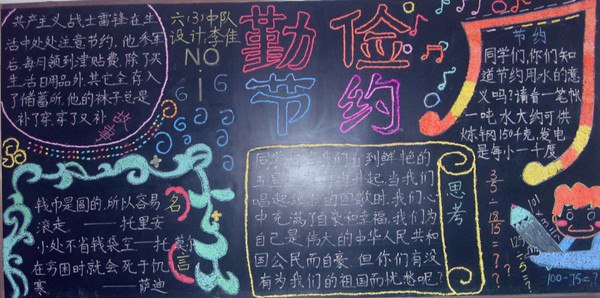 共产主义战士雷锋在生
活中处处注意节约,他参军
后,每月领到津贴费,除了买
生活日用品外,其它全存入
了储蓄所,他的袜子总是
补了穿,穿了又补
六(3)中队
设计:李佳
NO
1
勤俭
节约
节约
同学们,你们知
道节约用水的意
义吗?请看一笔帐
一吨水大约可供
炼钢150千克,发电
是每小一千度
名言
钱币是圆的,所以容易
滚走 ——托里安
小处不省钱袋空——托
在穷困时,就会死于饥
寒 ——萨迪
思考
同学们,当我们看到鲜艳的
五星红旗升起,当我们
唱起国歌时,我们心
中充满了自豪和幸福,我们为
自己是伟大的中华人民共和
国公民而自豪,但你们有没
有为我们的祖国而忧愁呢?
3/5 ÷ 18/15 = ?
100-75=?